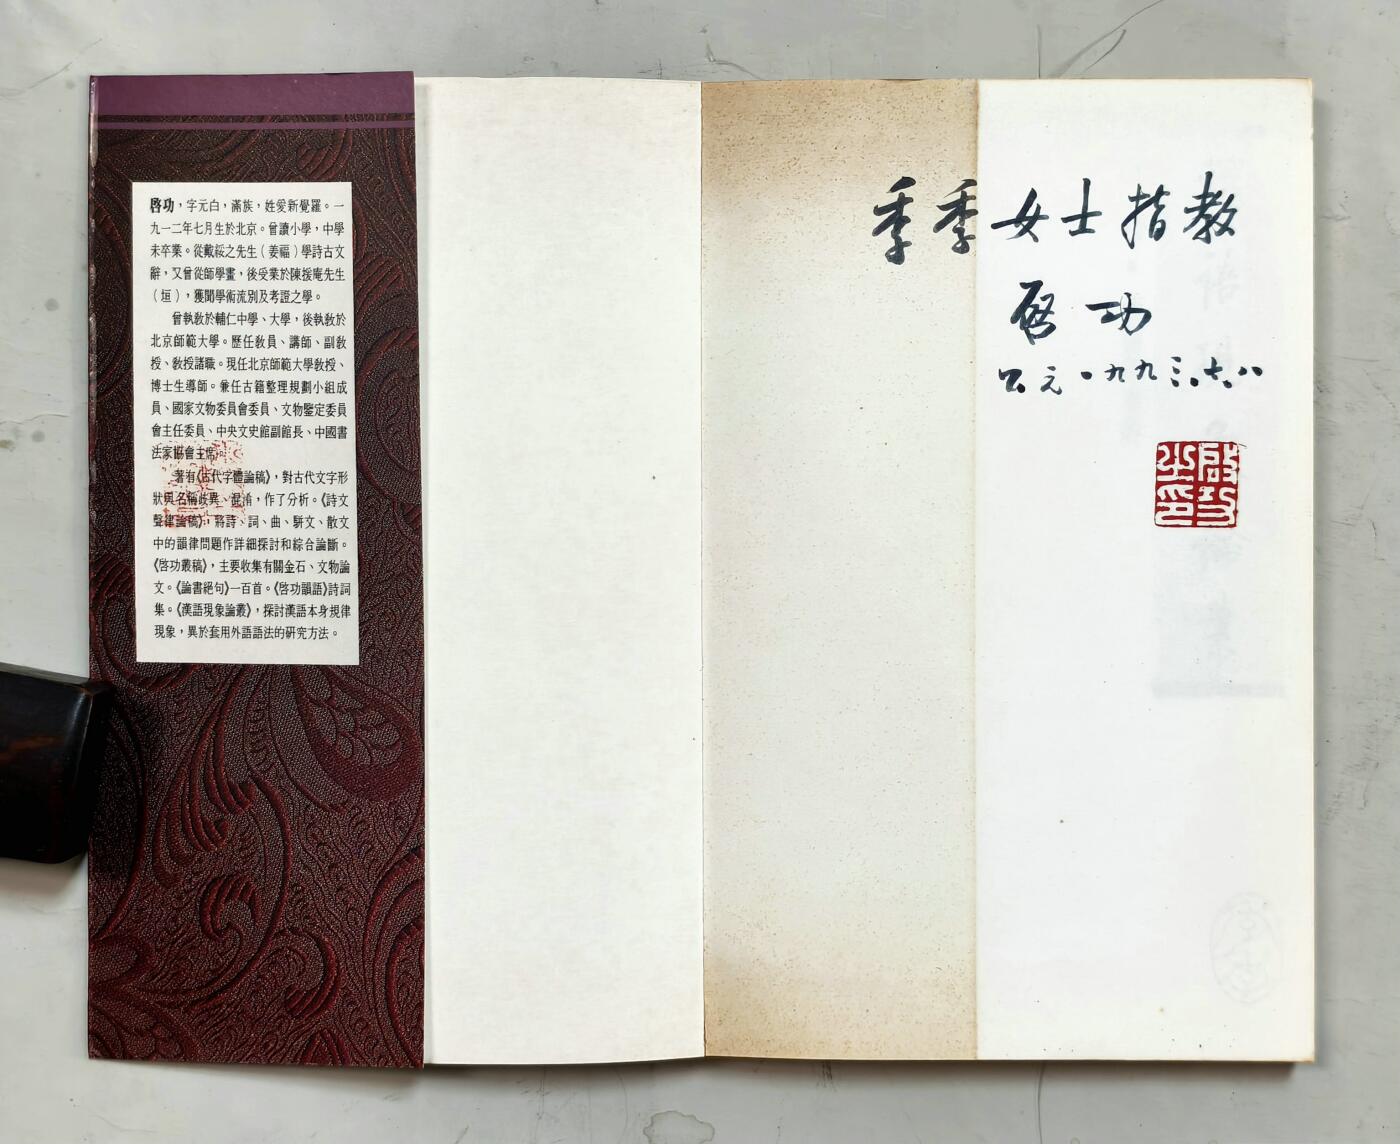 啓功，字元白，滿族，姓愛新覺羅。一
九一二年七月生於北京。曾讀小學，中學
未卒業。從戴綏之先生（姜福）學詩古文
辭，又曾從師學畫，後受業於陳援庵先生
（垣），獲聞學術流別及考證之學。
曾執敎於輔仁中學、大學，後執敎於
北京師範大學。歷任敎員、講師、副敎
授、敎授諸職。現任北京師範大學敎授、
博士生導師。兼任古籍整理規劃小組成
員、國家文物委員會委員、文物鑒定委員
會主任委員、中央文史館副館長、中國書
法家協會主席。
著有《古代字體論稿》，對古代文字形
狀與名稱歧異、混淆，作了分析。《詩文
聲律論稿》，將詩、詞、曲、駢文、散文
中的韻律問題作詳細探討和綜合論斷。
《啓功叢稿》，主要收集有關金石、文物論
文。《論書絕句》一百首。《啓功韻語》詩詞
集。《漢語現象論叢》，探討漢語本身規律
現象，異於套用外語語法的研究方法。
季季女士指教
啓功
公元一九九三、六、八
啓功之印